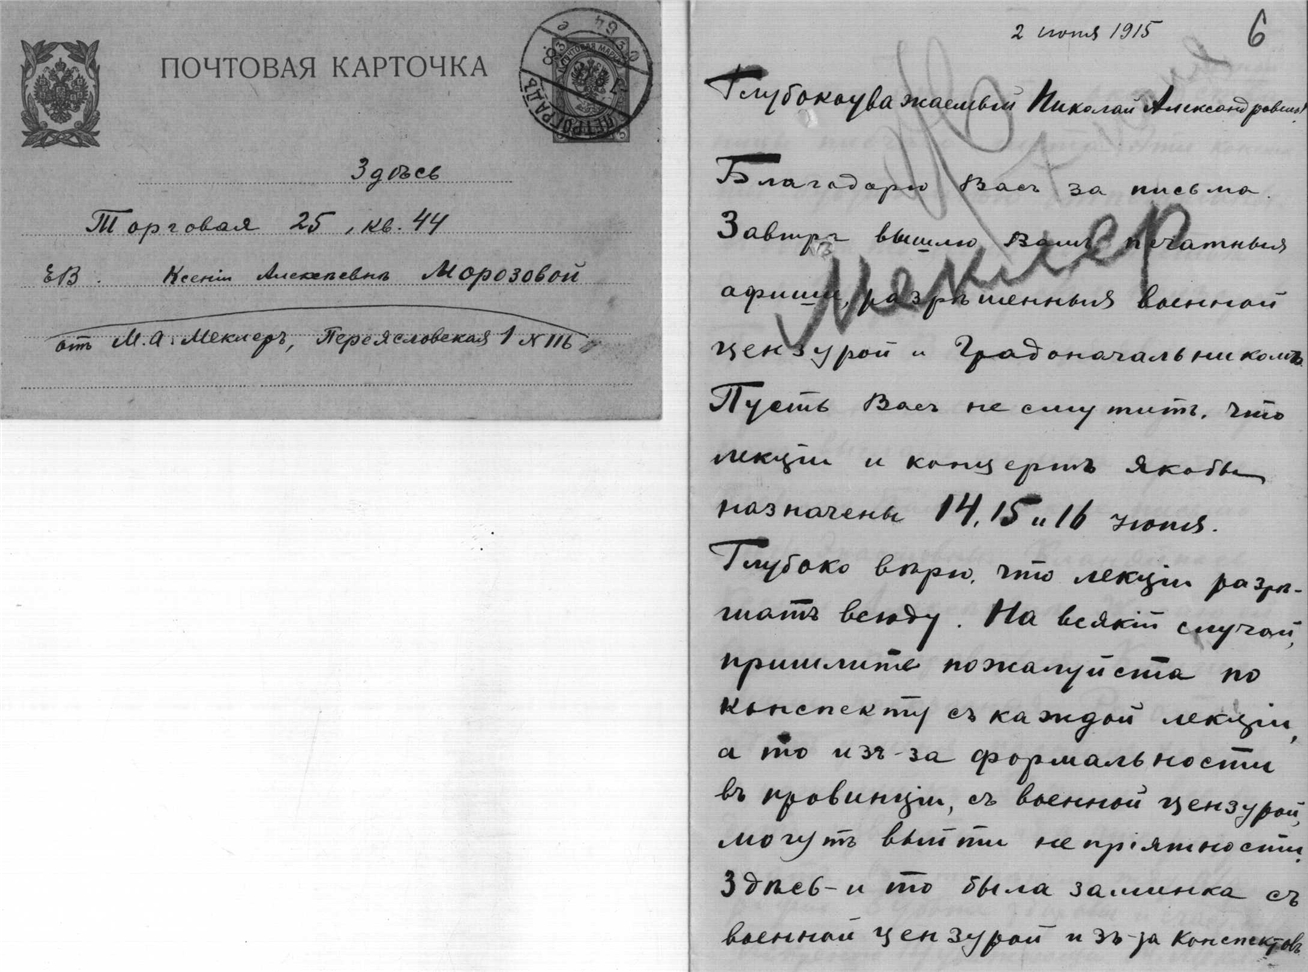 ПОЧТОВАЯ КАРТОЧКА
ПЕТРОГРАДЪ
Здѣсь
Торговая 25, кв. 44
ЕВ. Ксеніи Алексѣевнѣ Морозовой
отъ М. А. Меклеръ, Переясловская 1 № 116
2 іюня 1915
6
Глубокоуважаемый Николай Александровичъ!
Благодарю Васъ за письма.
Завтра вышлю Вамъ печатныя
Меклер
афиши, разрѣшенныя военной
цензурой и Градоначальникомъ.
Пусть Васъ не смутитъ, что
лекціи и концертъ якобы
назначены 14, 15 и 16 іюня.
Глубоко вѣрю, что лекціи разрѣ-
шатъ всюду. На всякій случай,
пришлите пожалуйста по
конспекту съ каждой лекціи,
а то изъ-за формальности
въ провинціи, съ военной цензурой,
могутъ выйти непріятности.
Здѣсь-и то была заминка съ
военной цензурой изъ-за конспектовъ